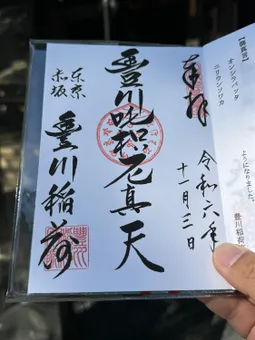 奉拝
令和六年
十一月三日
豊川吒枳尼真天
東京
赤坂
豊川稲荷
【御真言】
オンシラバッタ
ニリウンソワカ
ようになりました。
豊川稲荷